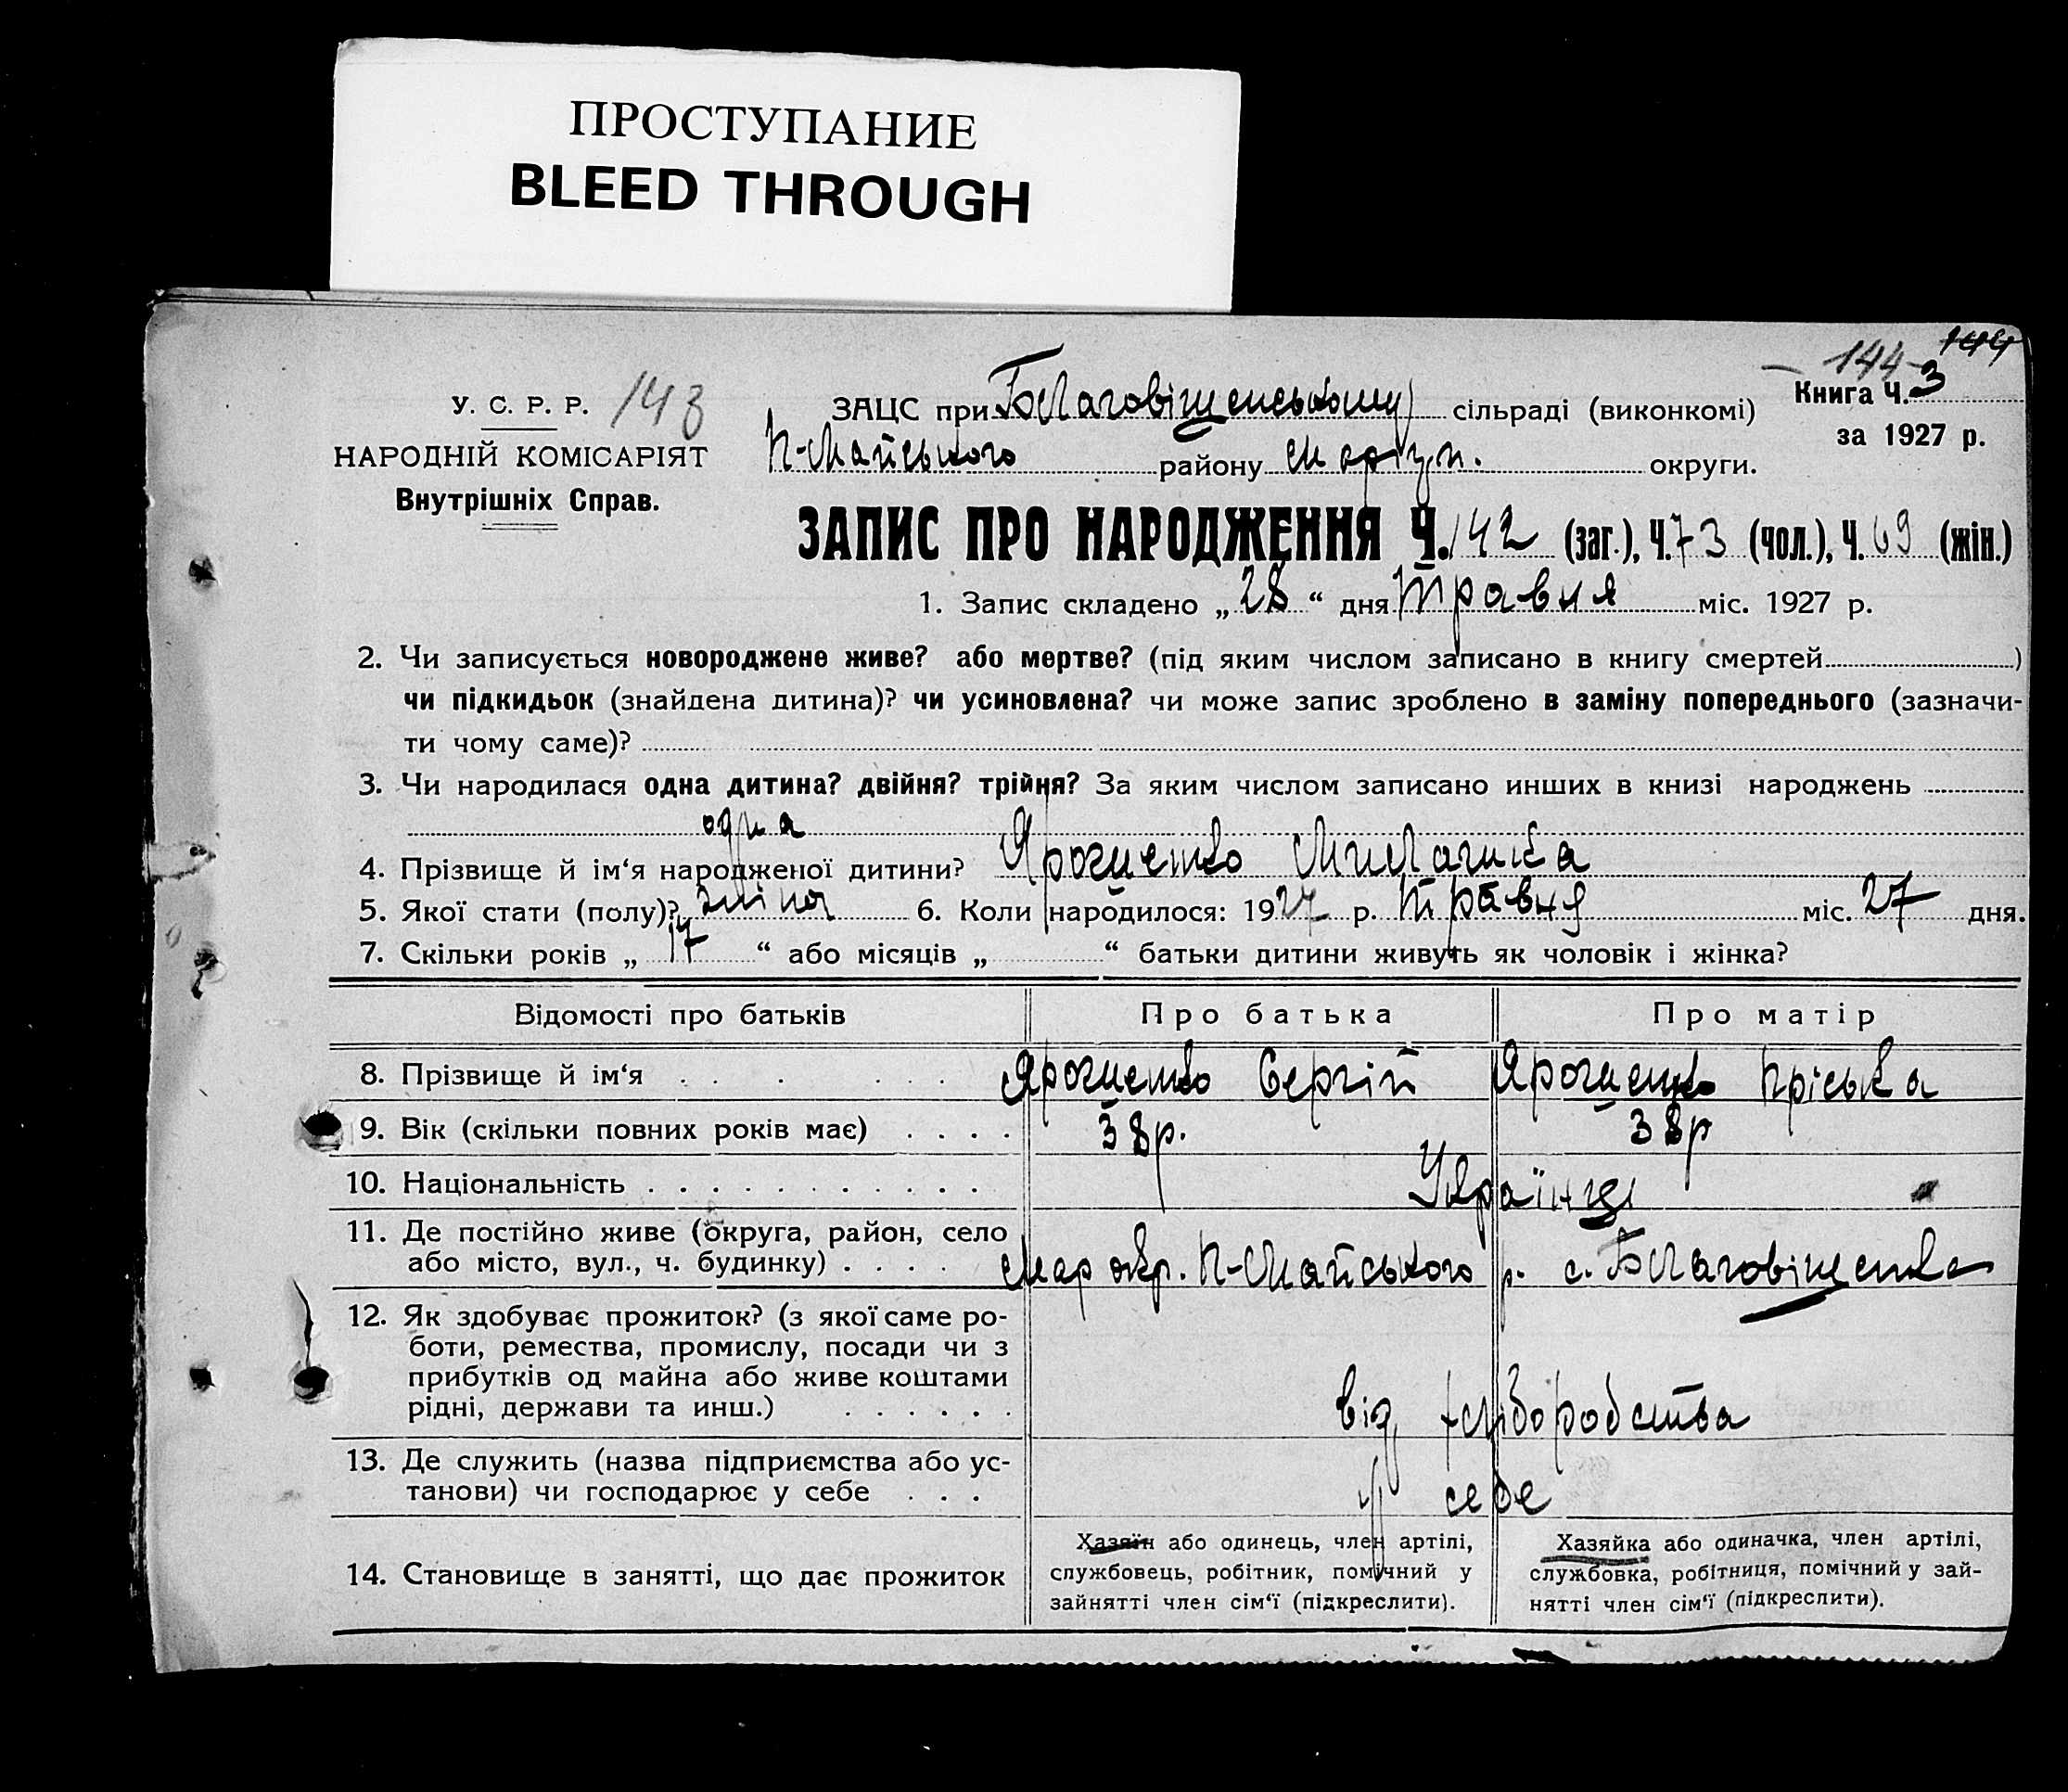 ПРОСТУПАНИЕ
BLEED THROUGH
144
144
У. С. Р. Р. 143
ЗАЦС при Благовіщенському сільраді (виконкомі)
Книга Ч. 3
НАРОДНІЙ КОМІСАРІЯТ
П-Майського району Маріуп. округи.
за 1927 р.
Внутрішніх Справ.
ЗАПИС ПРО НАРОДЖЕННЯ Ч. 142 (заг.), Ч. 73 (чол.), Ч. 69 (жін.)
1. Запис складено „ 28 “ дня Травня міс. 1927 р.
2. Чи записується новороджене живе? або мертве? (під яким числом записано в книгу смертей )
чи підкидьок (знайдена дитина)? чи усиновлена? чи може запис зроблено в заміну попереднього (зазначи-
ти чому саме)?
3. Чи народилася одна дитина? двійня? трійня? За яким числом записано инших в книзі народжень
одна
4. Прізвище й ім‘я народженої дитини? Ярошенко
5. Якої стати (полу)? 6. Коли народилося: 1927 р. Травня міс. 27 дня.
7. Скільки років „ 17 “ або місяців „ “ батьки дитини живуть як чоловік і жінка?
Відомості про батьків Про батька Про матір
8. Прізвище й ім‘я Ярошенко Сергій Ярошенко Пріська
9. Вік (скільки повних років має) 38р. 38р
10. Національність Українці
11. Де постійно живе (округа, район, село
або місто, вул., ч. будинку) Мар окр. П-Майського р. с. Благовіщенка
12. Як здобуває прожиток? (з якої саме ро-
боти, ремества, промислу, посади чи з
прибутків од майна або живе коштами
рідні, держави та инш.) від хліборобства
13. Де служить (назва підприємства або ус-
танови) чи господарює у себе у себе
14. Становище в занятті, що дає прожиток
Хазяїн або одинець, член артілі,
службовець, робітник, помічний у
зайнятті член сім‘ї (підкреслити).
Хазяйка або одиначка, член артілі,
службовка, робітниця, помічний у зай-
нятті член сім‘ї (підкреслити).